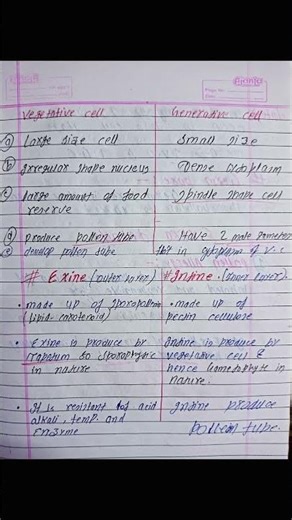 Vegetative cell Generative cell
a) Large size cell Small size
b) Irregular shape nucleus Dense cytoplasm
c) large amount of food Spindle shape cell
reserve
d) produce pollen tube Have 2 male gametes
e) develop pollen tube in cytoplasm of V.C
# Exine (outer layer) # Intine (Inner layer)
• made up of sporopollenin • made up of
(lipid carotenoid) pectin cellulose
• Exine is produce by Intine is produce by
tapetum so sporophytic vegetative cell &
in nature hence Gametophyte in
nature.
• It is resistant to acid Intine produce
alkali, temp. and pollen tube.
Enzyme